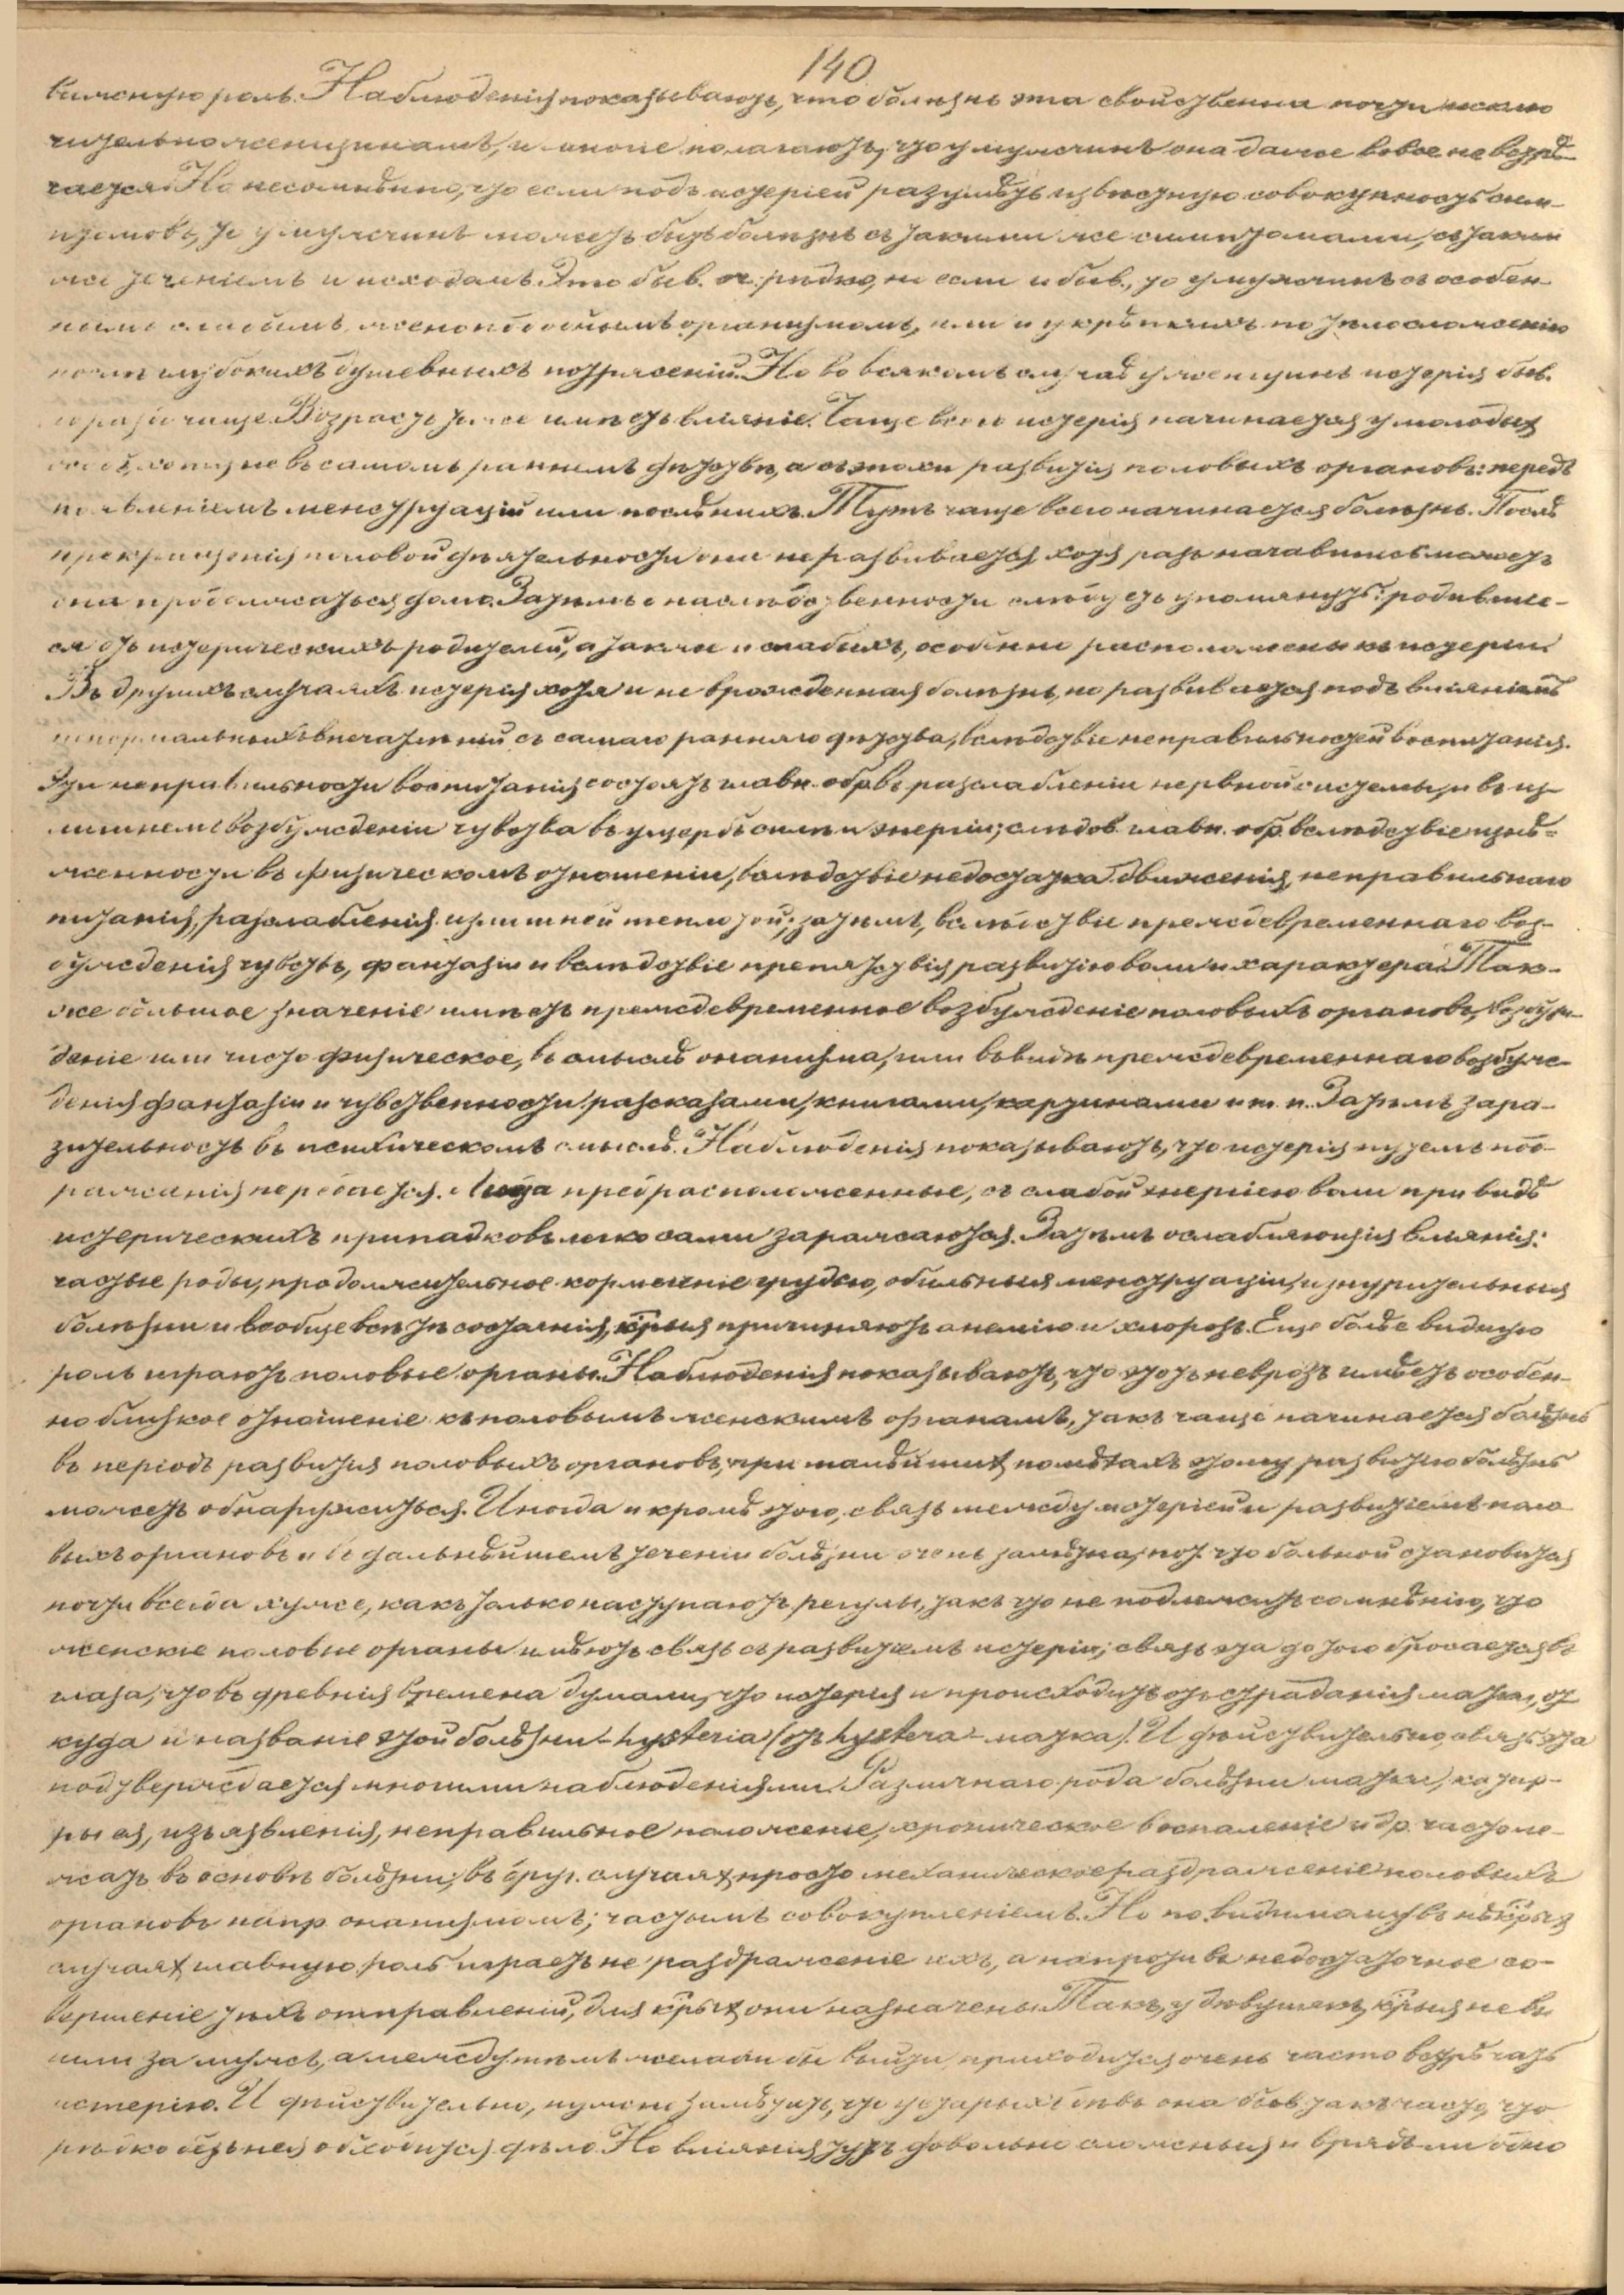 140
важную роль. Наблюденія показываютъ, что болѣзнь эта свойственна почти исклю
чительно женщинамъ, и многіе полагаютъ, что у мужчинъ она даже вовсе не встрѣ-
чается. Но несомнѣнно, что если подъ истеріей разумѣть извѣстную совокупность сим-
птомовъ, то у мужчинъ можетъ быть болѣзнь съ такими же симптомами, съ такимъ
же теченіемъ и исходомъ. Это быв. оч. рѣдко, но если и быв., то у мужчинъ съ особен-
нымъ слабымъ, женоподобнымъ организмомъ, или и у крѣпкихъ по тѣлосложенію
послѣ глубокихъ душевныхъ потрясеній. Но во всякомъ случаѣ у женщинъ истерія быв.
гораздо чаще. Возрастъ также имѣетъ вліяніе. Чаще всего истерія начинается у молодыхъ
особъ, хотя не въ самомъ раннемъ дѣтствѣ, а съ эпохи развитія половыхъ органовъ: передъ
появленіемъ менструацій или послѣ нихъ. Тутъ чаще всего начинается болѣзнь. Послѣ
прекращенія половой дѣятельности она не развивается, хотя разъ начавшись можетъ
она продолжаться долго. Затѣмъ о наслѣдственности слѣдуетъ упомянуть: родившіе-
ся отъ истерическихъ родителей, а также и слабыхъ, особенно расположены къ истеріи.
Въ другихъ случаяхъ истерія хотя и не врожденная болѣзнь, но развивается подъ вліяніемъ
ненормальныхъ впечатлѣній съ самаго ранняго дѣтства, вслѣдствіе неправильностей воспитанія.
Эти неправильности воспитанія состоятъ главн. обр. въ разслабленіи нервной системы, и въ из-
лишнемъ возбужденіи чувства въ ущербъ силѣ и энергіи; слѣдов. главн. обр. вслѣдствіе изнѣ-
женности въ физическомъ отношеніи, вслѣдствіе недостатка движенія, неправильнаго
питанія, разслабленія излишней теплотой; затѣмъ, вслѣдствіе преждевременнаго воз-
бужденія чувствъ, фантазіи и вслѣдствіе препятствія развитію воли и характера. Так-
же большое значеніе имѣетъ преждевременное возбужденіе половыхъ органовъ, возбуж-
деніе или чисто физическое, въ смыслѣ онанизма, или въ видѣ преждевременнаго возбуж-
денія фантазіи и чувственности разсказами, книгами, картинами и т. п. Затѣмъ зара-
зительность въ психическомъ смыслѣ. Наблюденія показываютъ, что истерія путемъ под-
ражанія передается. Лица предрасположенные, съ слабой энергіею воли при видѣ
истерическихъ припадковъ легко сами заражаются. Затѣмъ ослабляющія вліянія:
частые роды, продолжительное кормленіе грудью, обильныя менструаціи, изнурительныя
болѣзни и вообще всѣ тѣ состоянія, крыя причиняютъ анемію и хлорозъ. Еще болѣе видную
роль играютъ половые органы. Наблюденія показываютъ, что этотъ неврозъ имѣетъ особен-
но близкое отношеніе къ половымъ женскимъ органамъ, такъ чаще начинается болѣзнь
въ періодъ развитія половыхъ органовъ, при малѣйшихъ помѣхахъ этому развитію болѣзнь
можетъ обнаружиться. Иногда и кромѣ того, связь между истеріей и развитіемъ поло
выхъ органовъ и въ дальнѣйшемъ теченіи болѣзни очень замѣтна, пот. что больной становится
почти всегда хуже, какъ только наступаютъ регулы, такъ что не подлежитъ сомнѣнію, что
женскіе половые органы имѣютъ связь съ развитіемъ истеріи; связь эта до того бросается въ
глаза, что въ древнія времена думали, что истерія и происходитъ отъ страданія матки, от
куда и названіе этой болѣзни – hysteria (отъ hystera – матка). И дѣйствительно, связь эта
подтверждается многими наблюденіями. Различнаго рода болѣзни матки, катар-
ры ея, изъязвленія, неправильное положеніе, хроническое воспаленіе и др. часто ле-
жатъ въ основѣ болѣзни; въ друг. случаяхъ просто механическое раздраженіе половыхъ
органовъ напр. онанизмомъ, частымъ совокупленіемъ. Но по видимому въ нѣкрыхъ
случаяхъ главную роль играетъ не раздраженіе ихъ, а напротивъ недостаточное со-
вершеніе тѣхъ отправленій, для крыхъ они назначены. Такъ, у дѣвушекъ, крыя не вы
шли за мужъ, а между тѣмъ желали бы выйти, приходится очень часто встрѣчать
истерію. И дѣйствительно, нужно замѣтить, что у старыхъ дѣвъ она быв. такъ часто, что
рѣдко безъ нея обходится дѣло. Но вліянія тутъ довольно сложныя и врядъ ли одно